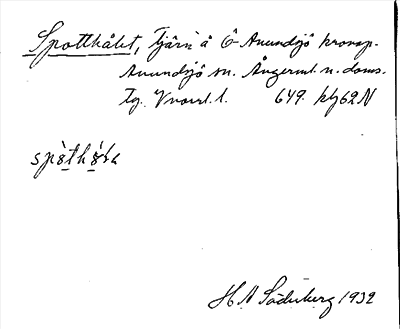 Spotthålet, Tjärn å Ö Anundsjö kronop.
Anundsjö sn. Ångerml. n. doms.
Tg. Vnorrl. l. 649. klj62N
H A Söderberg 1932